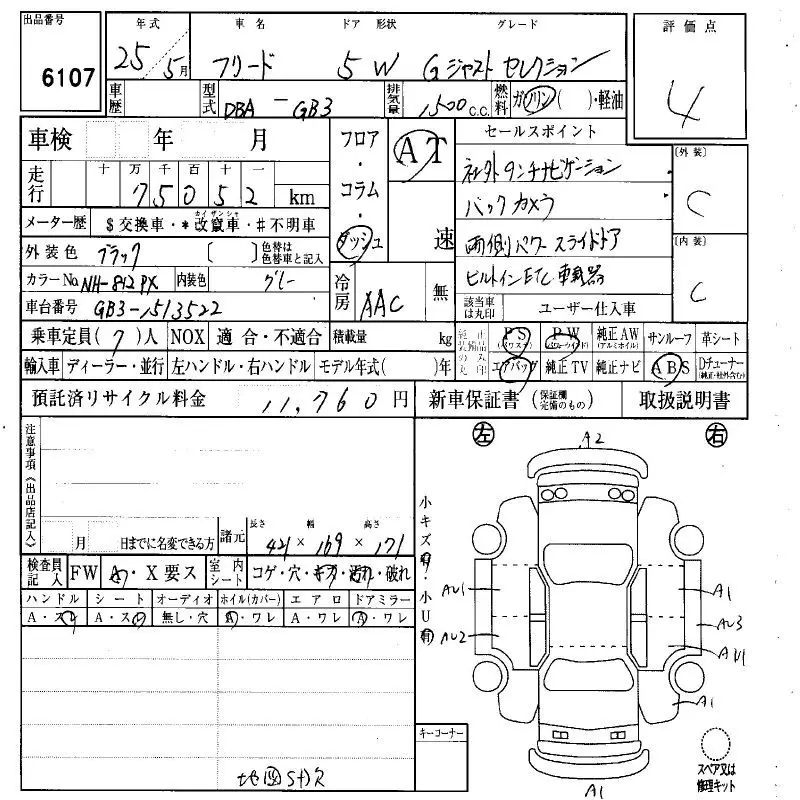 出品番号 年式 車名 ドア 形状 グレード 評価点
6107 25/5月 フリード 5W Gジャスト セレクション 4
車歴 型式 DBA-GB3 排気量 1500 C.C. 燃料 ガソリン( )・軽油
車検 年 月 フロア・コラム・ダッシュ AT 速 セールスポイント [外装] C
走行 十 万 千 百 十 一
75052 km
社外 ナビゲーション
バックカメラ
両側パワースライドドア
ビルトインETC車載器
[内装] C
メーター歴 $交換車・*改竄車・#不明車
カイ ザンシャ
外装色 ブラック [ ] 色替は色替車と記入
カラーNo NH-812PX 内装色 グレー
冷房 AAC 無
車台番号 GB3-1513522
該当車は丸印 ユーザー仕入車
乗車定員(7)人 NOX 適合・不適合 積載量 kg
純正装備品のみ丸印 PS (パワステ) PW (パワーウインド) 純正AW (アルミホイル) サンルーフ 革シート
輸入車 ディーラー・並行 左ハンドル・右ハンドル モデル年式( )年
エアバッグ 純正TV 純正ナビ ABS Dチューナー (純正・社外含む)
預託済リサイクル料金 11,760円 新車保証書 (保証欄完備のもの) 取扱説明書
注意事項《出品店記入》
月 日までに名変できる方 諸元 長さ 幅 高さ
421 × 169 × 171
検査員記入 FW A・X要ス 室内シート コゲ・穴・キズ・汚れ・破れ
ハンドル シート オーディオ ホイル(カバー) エアロ ドアミラー
A・スレ A・スレ 無し・穴 A・ワレ A・ワレ A・ワレ
左 A2 右
小キズ有・小U有
AU1 A1
AU2 AU3
AU1
A1
A1
キーコーナー
スペア又は修理キット